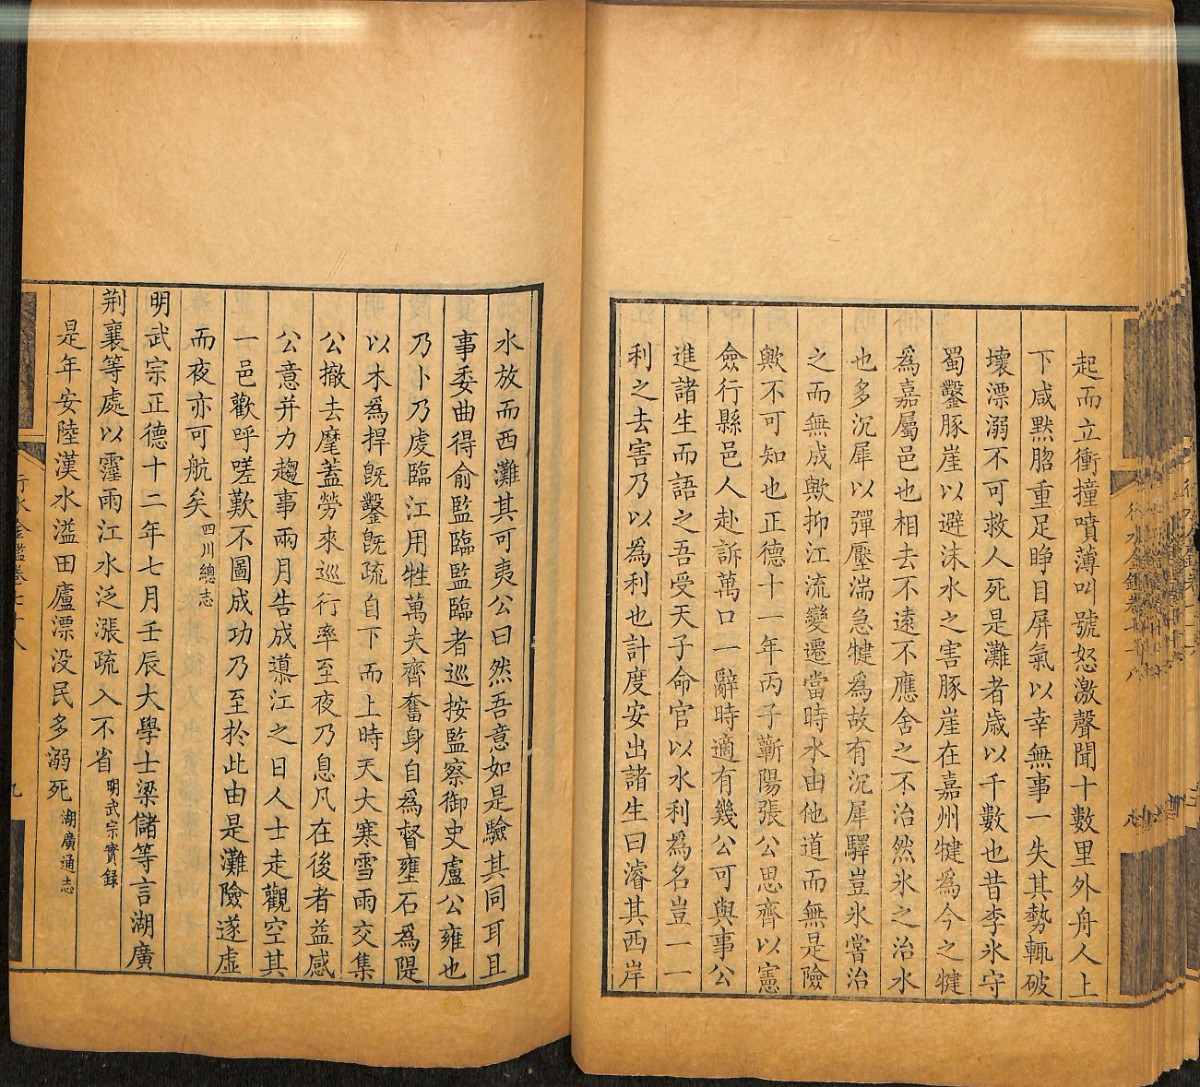 起而立衝撞噴薄叫號怒激聲聞十數里外舟人上
下咸黙胳重足睜目屏氣以幸無事一失其勢輒破
壞漂溺不可救人死是灘者歲以千數也昔李氷守
蜀鑿豚崖以避沫水之害豚崖在嘉州犍爲今之犍
爲嘉屬邑也相去不遠不應舍之不治然氷之治水
也多沉犀以彈壓湍急犍爲故有沉犀驛豈氷嘗治
之而無成歟抑江流變遷當時水由他道而無是險
歟不可知也正德十一年丙子蘄陽張公思齊以憲
僉行縣邑人赴訴萬口一辭時適有幾公可與事公
進諸生而語之吾受天子命官以水利爲名豈一一
利之去害乃以爲利也計度安出諸生曰濬其西岸
水放而西灘其可夷公曰然吾意如是驗其同耳且
事委曲得俞監臨監臨者巡按監察御史盧公雍也
乃卜乃虔臨江用牲萬夫齊奮身自爲督壅石爲隄
以木爲捍旣鑿旣疏自下而上時天大寒雪雨交集
公撤去麾蓋勞來巡行率至夜乃息凡在後者益感
公意并力趨事兩月告成導江之日人士走觀空其
一邑歡呼嗟歎不圖成功乃至於此由是灘險遂虛
而夜亦可航矣 四川總志
明武宗正德十二年七月壬辰大學士梁儲等言湖廣
荆襄等處以霪雨江水泛漲疏入不省 明武宗實録
是年安陸漢水溢田廬漂没民多溺死 湖廣通志
行水金鑑卷七十八
九